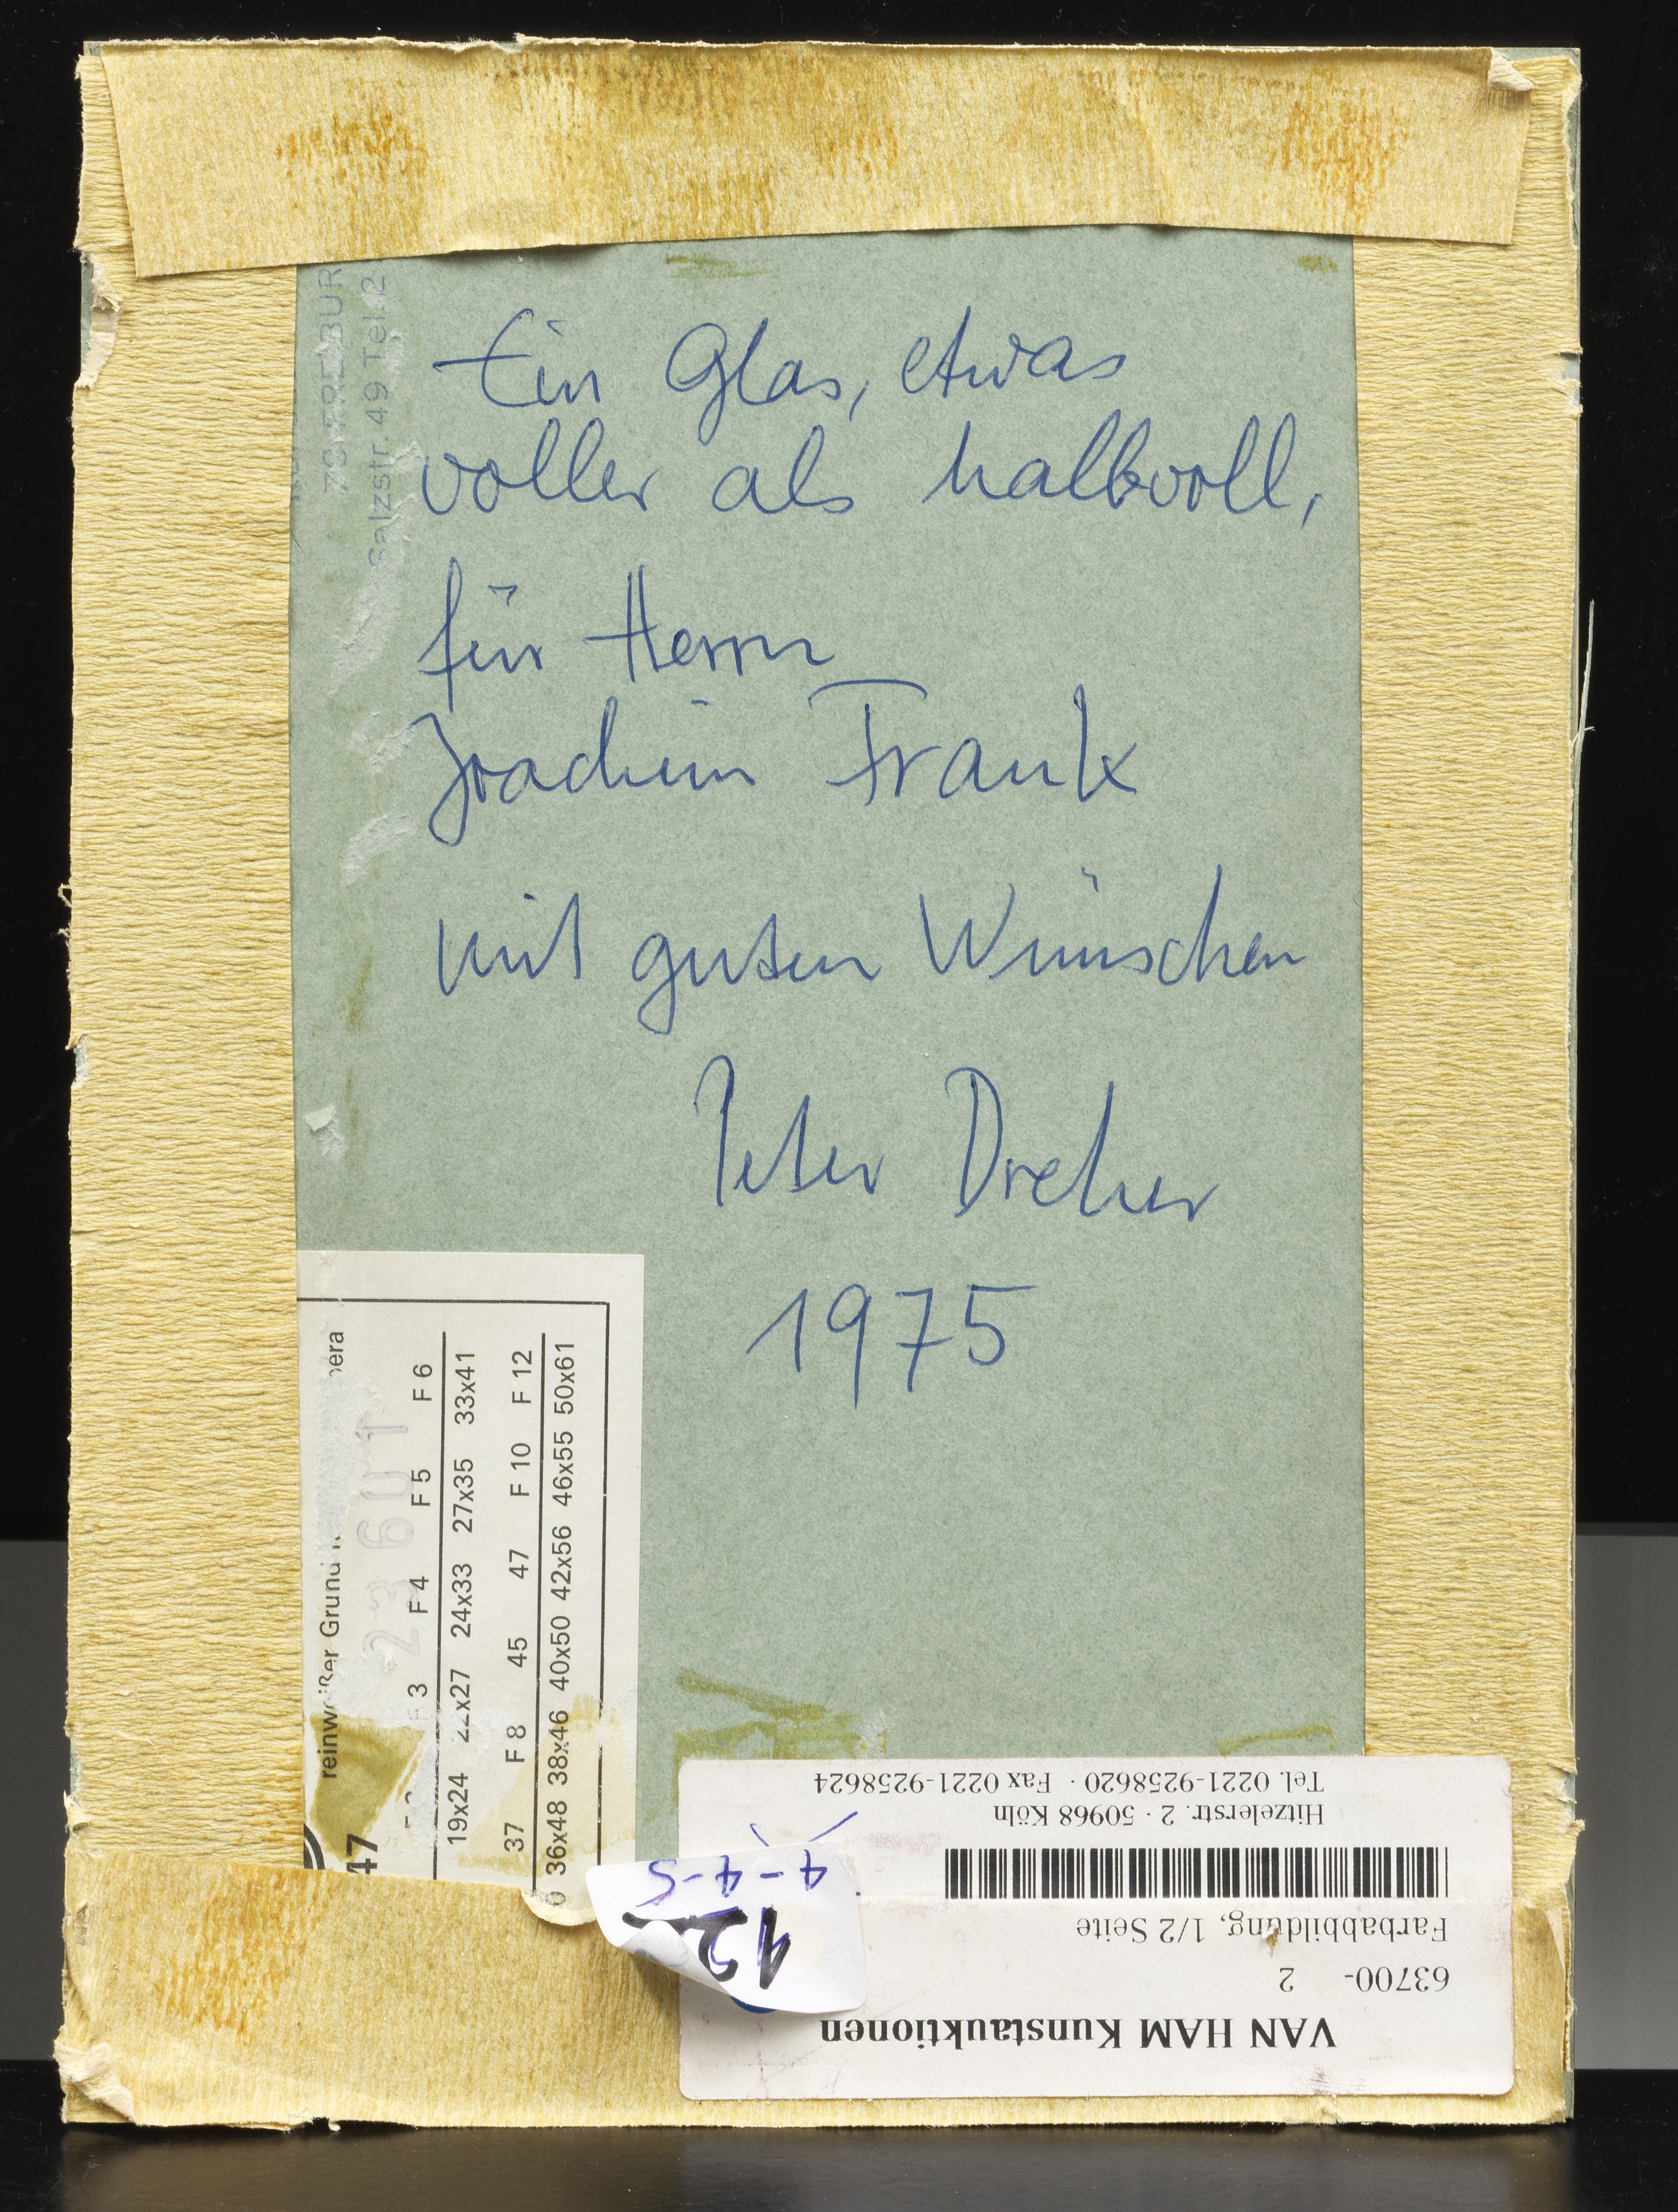 Ein Glas, etwas
voller als halbvoll,
für Herrn
Joachim Frank
mit guten Wünschen
Peter Dreher
1975
FREIBUR
Salzstr. 49 Tel. 2
reinweißer Grund
23601
47
3 F 4 F 5 F 6
19x24 22x27 24x33 27x35 33x41
37 F 8 45 47 F 10 F 12
36x48 38x46 40x50 42x56 46x55 50x61
VAN HAM Kunstauktionen
63700- 2
Farbabbildung, 1/2 Seite
Hitzelerstr. 2 · 50968 Köln
Tel. 0221-9258620 · Fax 0221-9258624
12
4-4-5